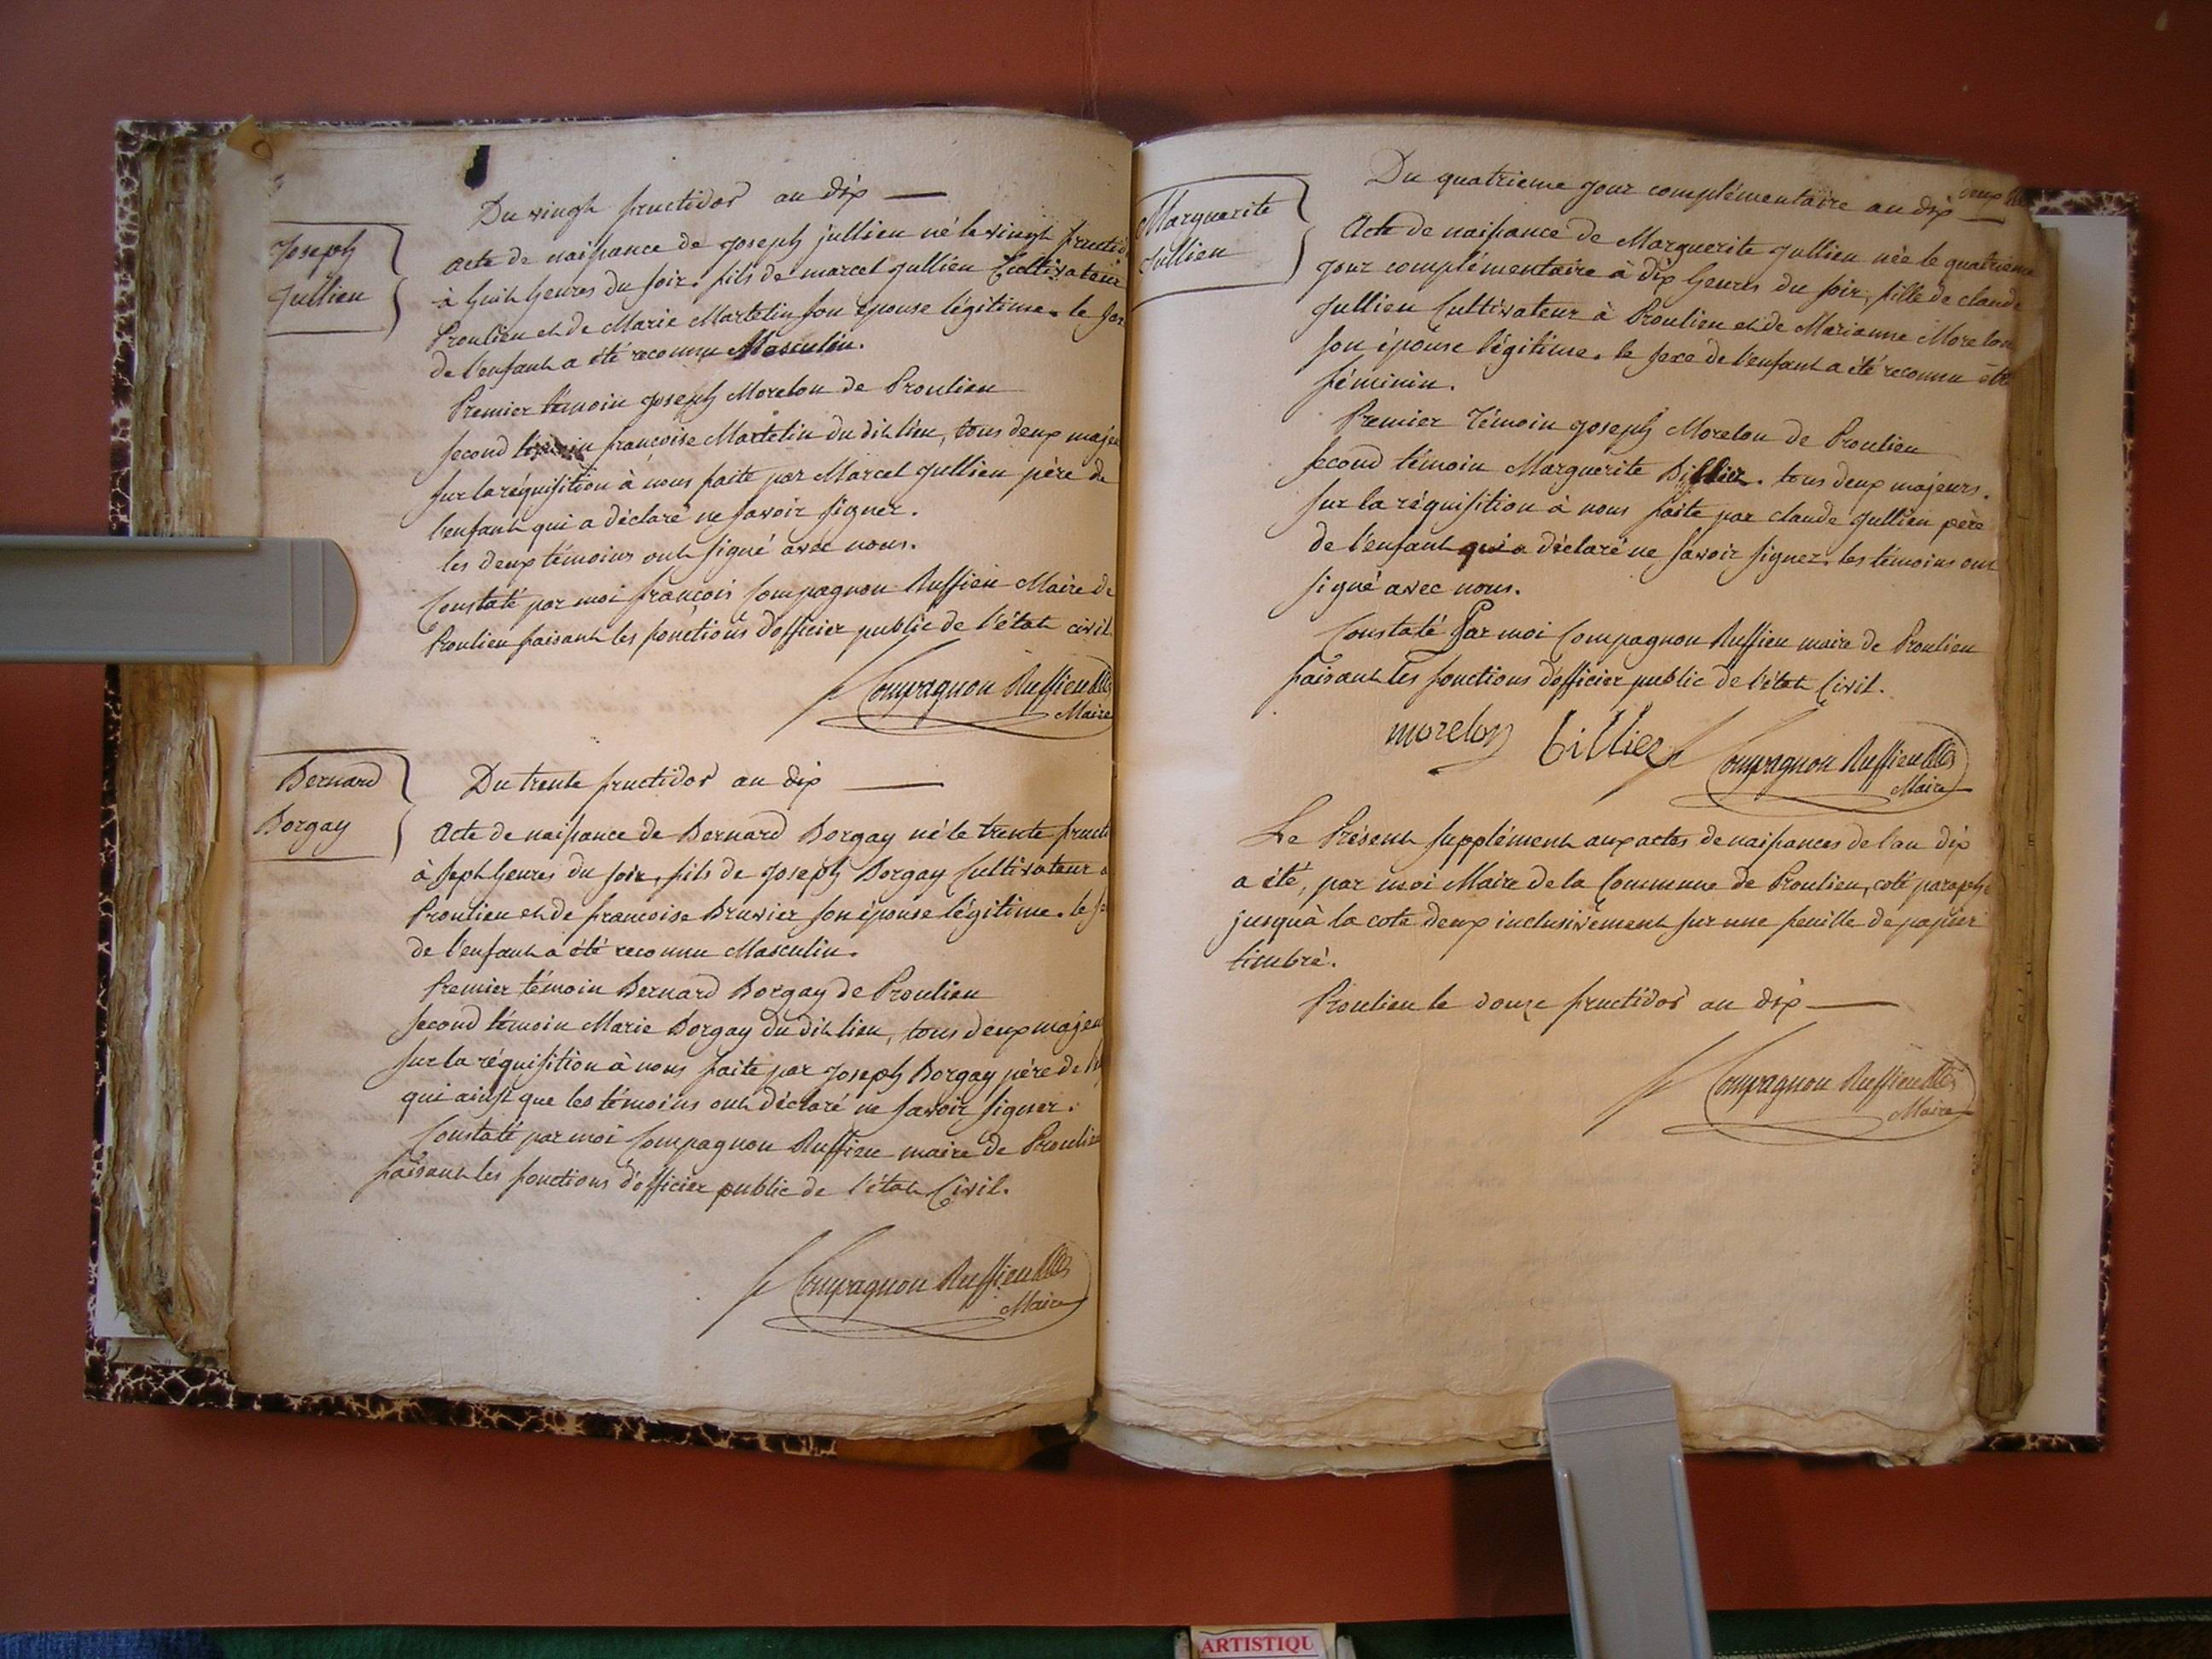 Joseph
Jullien
Du vingt fructidor an dix
acte de naissance de joseph jullien né le vingt fructid
à huit heures du soir. fils de marcel jullien Cultivateur
Proulieu et de Marie Martelin son épouse légitime. le sex
de l'enfant a été reconnu Masculin.
Premier témoin joseph Morelon de Proulieu
second témoin françoise Martelin du dit lieu, tous deux majeu
sur la réquisition à nous faite par Marcel jullien père de
l'enfant qui a déclaré ne savoir signer.
les deux témoins ont signé avec nous.
Constaté par moi françois Compagnon Ruffieu Maire de
Proulieu faisant les fonctions d'officier public de l'état civil.
Compagnon Ruffieu
Maire
Bernard
Borgay
Du trente fructidor an dix
Acte de naissance de Bernard Borgay né le trente fructi
à sept heures du soir, fils de joseph Borgay Cultivateur a
Proulieu et de francoise Bruvier son épouse légitime. le se
de l'enfant a été reconnu Masculin.
Premier témoin Bernard Borgay de Proulieu
second témoin Marie Borgay du dit lieu, tous deux majeu
sur la réquisition à nous faite par joseph Borgay père de
qui ainsi que les témoins ont déclaré ne savoir signer.
Constaté par moi Compagnon Ruffieu maire de Proulieu
faisant les fonctions d'officier public de l'état Civil.
Compagnon Ruffieu
Maire
deux
Marguerite
Jullien
Du quatrieme jour complémentaire an dix
Acte de naissance de Marguerite jullien née le quatrieme
jour complémentaire à dix heures du soir, fille de claude
jullien Cultivateur à Proulieu et de Marianne Morelon
son épouse légitime. le sexe de l'enfant a été reconnu être
féminin.
Premier Témoin joseph Morelon de Proulieu
second témoin Marguerite Billiez. tous deux majeurs.
sur la réquisition à nous faite par claude jullien père
de l'enfant qui a déclaré ne savoir signer. les témoins ont
signé avec nous.
Constaté Par moi Compagnon Ruffieu maire de Proulieu
faisant les fonctions d'officier public de l'état Civil.
morelon billiez Compagnon Ruffieu
Maire
Le Présent supplément aux actes de naissances de l'an dix
a été, par moi Maire de la Commune de Proulieu, coté paraphé
jusqu'à la cote deux inclusivement sur une feuille de papier
timbré.
Proulieu le douze fructidor an dix
Compagnon Ruffieu
Maire
ARTISTIQU